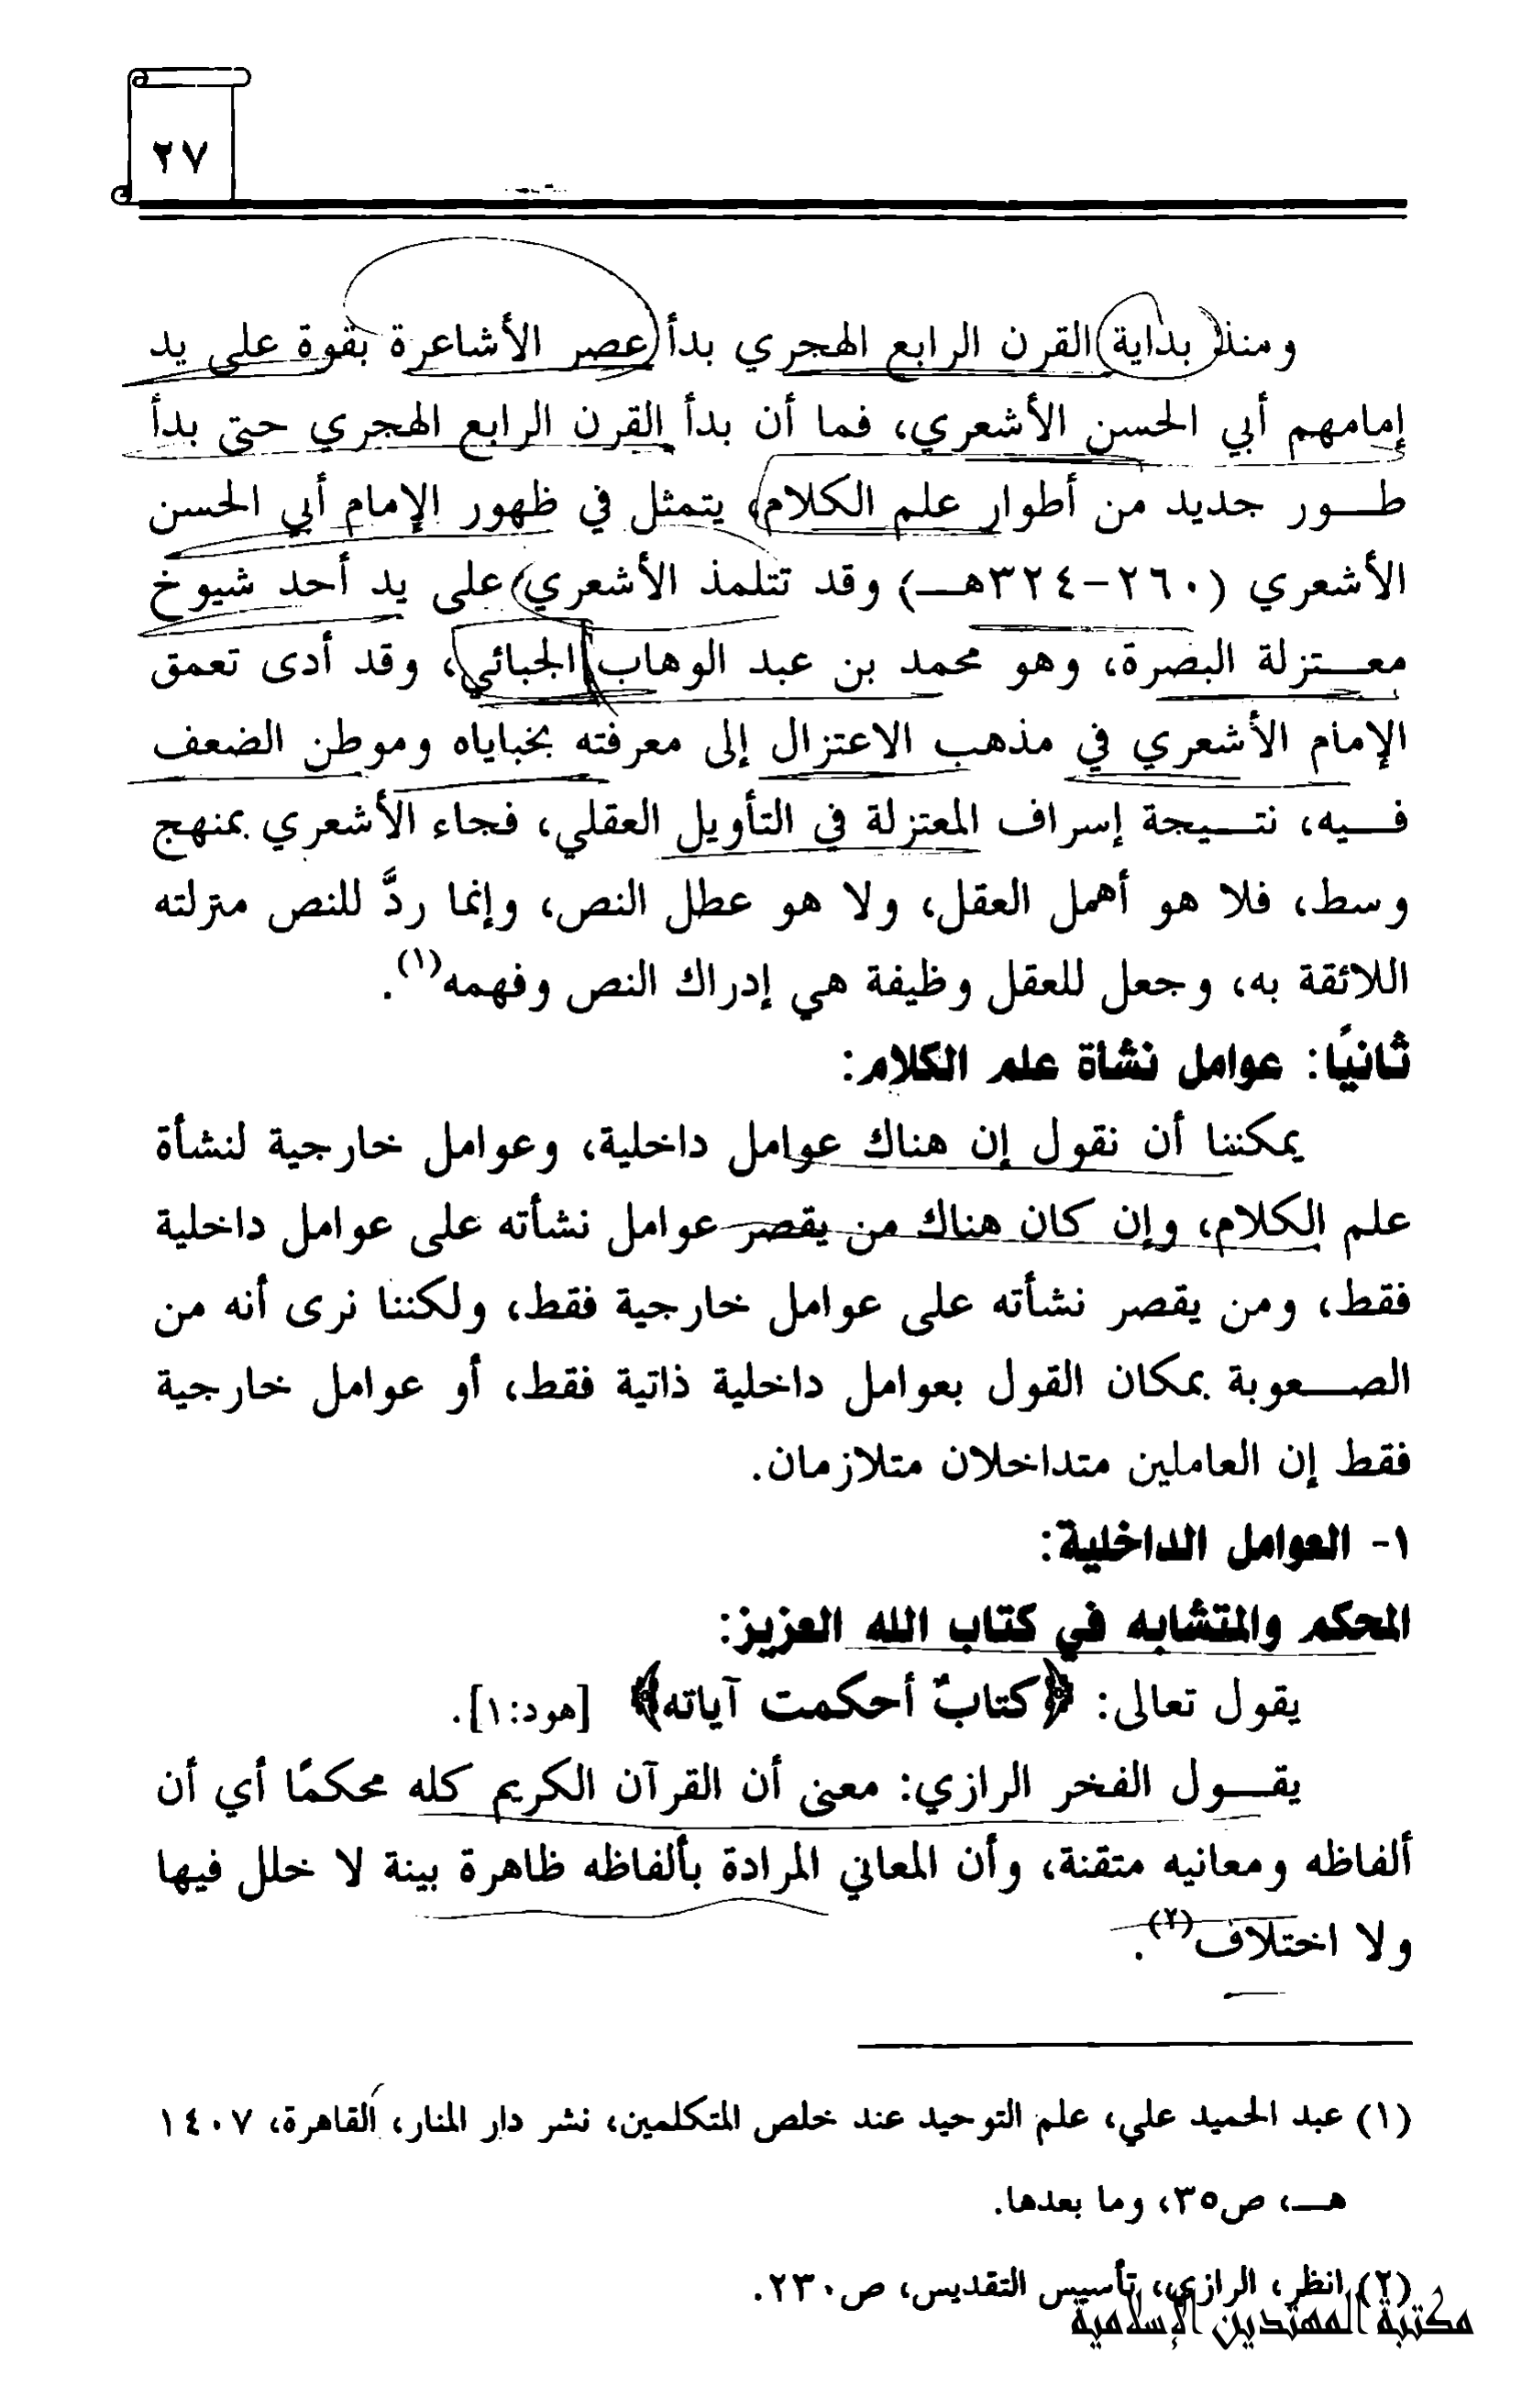 ٢٧
ومنذ بداية القرن الرابع الهجري بدأ عصر الأشاعرة بقوة على يد
إمامهم أبي الحسن الأشعري، فما أن بدأ القرن الرابع الهجري حتى بدأ
طـــور جديد من أطوار علم الكلام، يتمثل في ظهور الإمام أبي الحسن
الأشعري (٢٦٠-٣٢٤هـــ) وقد تتلمذ الأشعري على يد أحد شيوخ
معـــتزلة البصرة، وهو محمد بن عبد الوهاب الجبائي، وقد أدى تعمق
الإمام الأشعري في مذهب الاعتزال إلى معرفته بخباياه وموطن الضعف
فـــيه، نتـــيجة إسراف المعتزلة في التأويل العقلي، فجاء الأشعري بمنهج
وسط، فلا هو أهمل العقل، ولا هو عطل النص، وإنما ردَّ للنص منزلته
اللائقة به، وجعل للعقل وظيفة هي إدراك النص وفهمه(١).
ثانيًا: عوامل نشأة علم الكلام:
يمكننا أن نقول إن هناك عوامل داخلية، وعوامل خارجية لنشأة
علم الكلام، وإن كان هناك من يقصر عوامل نشأته على عوامل داخلية
فقط، ومن يقصر نشأته على عوامل خارجية فقط، ولكننا نرى أنه من
الصـــعوبة بمكان القول بعوامل داخلية ذاتية فقط، أو عوامل خارجية
فقط إن العاملين متداخلان متلازمان.
١- العوامل الداخلية:
المحكم والمتشابه في كتاب الله العزيز:
يقول تعالى: ﴿كتابٌ أحكمت آياته﴾ [هود:١].
يقـــول الفخر الرازي: معنى أن القرآن الكريم كله محكمًا أي أن
ألفاظه ومعانيه متقنة، وأن المعاني المرادة بألفاظه ظاهرة بينة لا خلل فيها
ولا اختلاف(٢).
(١) عبد الحميد علي، علم التوحيد عند خلص المتكلمين، نشر دار المنار، القاهرة، ١٤٠٧
هـــ، ص٣٥، وما بعدها.
(٢) انظر، الرازي، تأسيس التقديس، ص٢٣٠.
مكتبة المهتدين الإسلامية